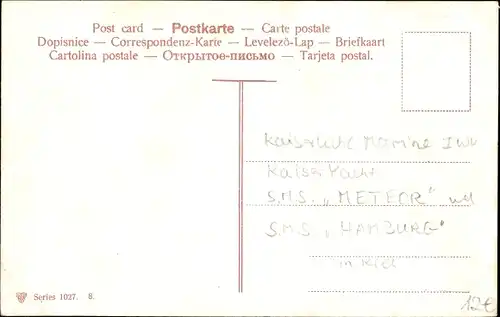 Post card — Postkarte — Carte postale
Dopisnice — Correspondenz-Karte — Levelező-Lap — Briefkaart
Cartolina postale — Открытое-письмо — Tarjeta postal.
Kaiserliche Marine I WK
Kaiser Yacht
S.M.S. „METEOR" und
S.M.S. „HAMBURG"
in Kiel
Series 1027. 8.
12€